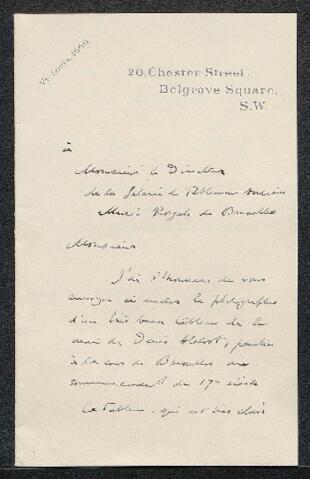 Victoria 1660
20, Chester Street,
Belgrave Square,
S.W.
à
Monsieur le Directeur
de la Galerie de Tableaux
Musée Royale de Bruxelles
Monsieur
J'ai l'honneur de vous
envoyer la photographie
d'un très beau tableau de la
main de Denis
à la cour de Bruxelles au
commencement du 17me siècle
Ce tableau, qui est très